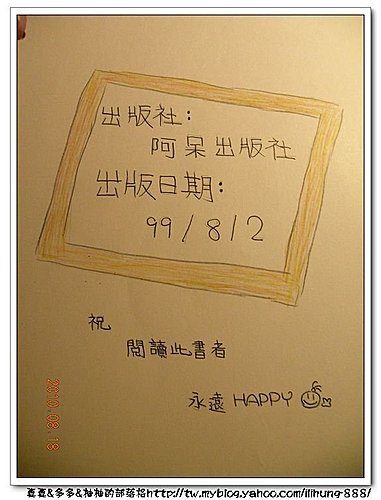 出版社:
阿呆出版社
出版日期:
99/8/2
祝
閱讀此書者
永遠 HAPPY
2010.08.18
嘉嘉&多多&柚柚的部落格http://tw.myblog.yahoo.com/ilihung-888/